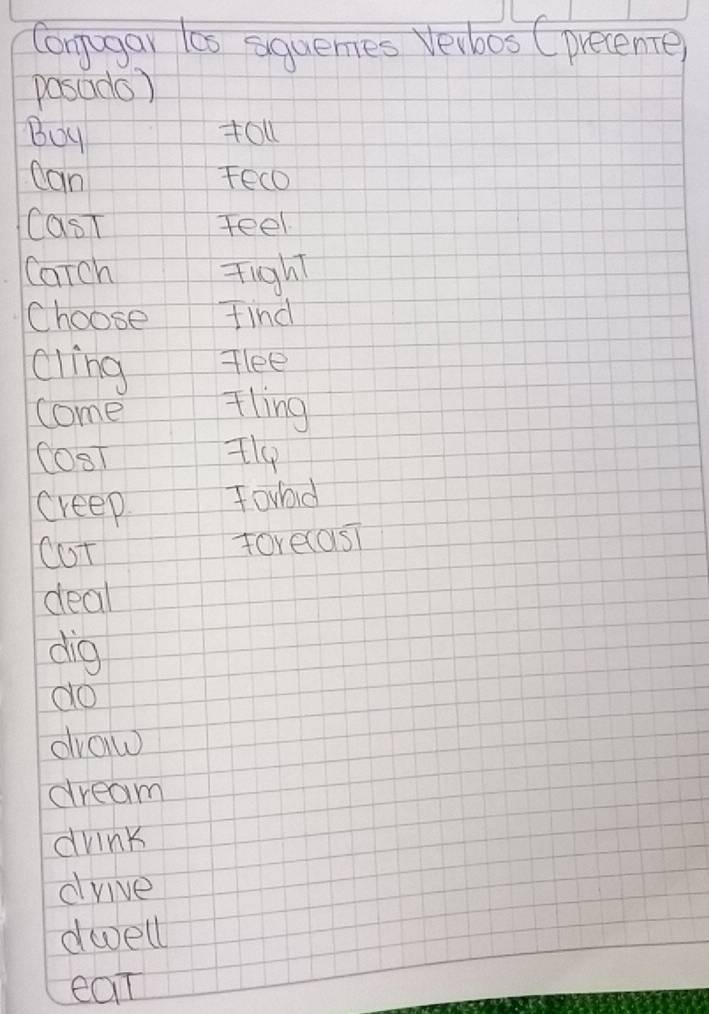 Conjugar los siguentes Verbos (precente,
pasado)
Buy Fall
Can Feco
Cast Feel
Catch Fight
Choose Find
Cling Flee
Come Fling
Cost Fly
Creep Forbid
Cut Forecast
deal
dig
do
draw
dream
drink
drive
dwell
eat